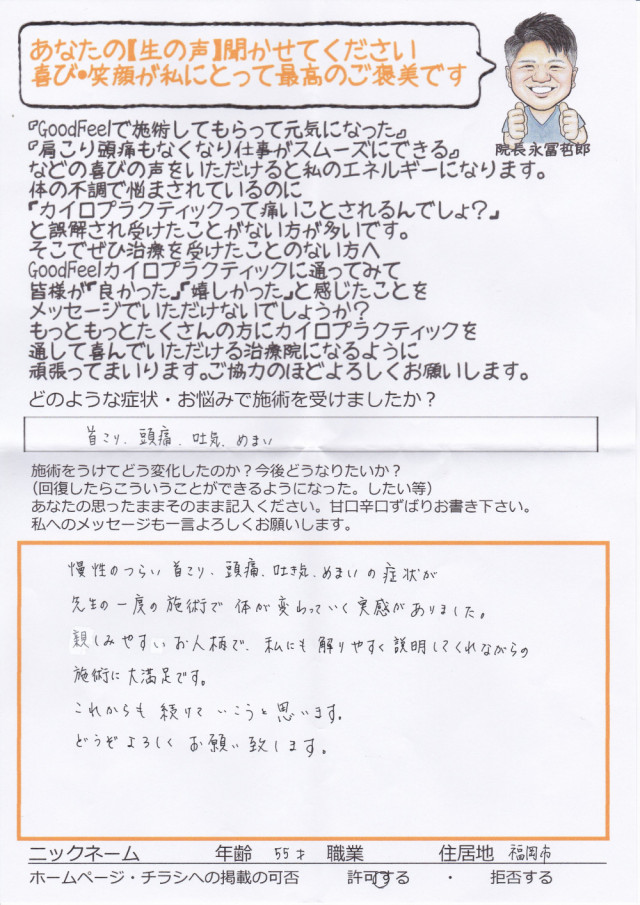 あなたの【生の声】聞かせてください
喜び・笑顔が私にとって最高のご褒美です
院長永冨哲郎
『GoodFeelで施術してもらって元気になった』
『肩こり頭痛もなくなり仕事がスムーズにできる』
などの喜びの声をいただけると私のエネルギーになります。
体の不調で悩まされているのに
『カイロプラクティックって痛いことされるんでしょ?』
と誤解され受けたことがない方が多いです。
そこでぜひ治療を受けたことのない方へ
GoodFeelカイロプラクティックに通ってみて
皆様が『良かった』『嬉しかった』と感じたことを
メッセージでいただけないでしょうか?
もっともっとたくさんの方にカイロプラクティックを
通して喜んでいただける治療院になるように
頑張ってまいります。ご協力のほどよろしくお願いします。
どのような症状・お悩みで施術を受けましたか?
首こり、頭痛、吐気、めまい
施術をうけてどう変化したのか?今後どうなりたいか?
(回復したらこういうことができるようになった。したい等)
あなたの思ったままそのまま記入ください。甘口辛口ずばりお書き下さい。
私へのメッセージも一言よろしくお願いします。
慢性のつらい首こり、頭痛、吐き気、めまいの症状が
先生の一度の施術で体が変わっていく実感がありました。
親しみやすいお人柄で、私にも解りやすく説明してくれながらの
施術に大満足です。
これからも続けていこうと思います。
どうぞよろしくお願い致します。
ニックネーム 年齢 55才 職業 住居地 福岡市
ホームページ・チラシへの掲載の可否 許可する ・ 拒否する